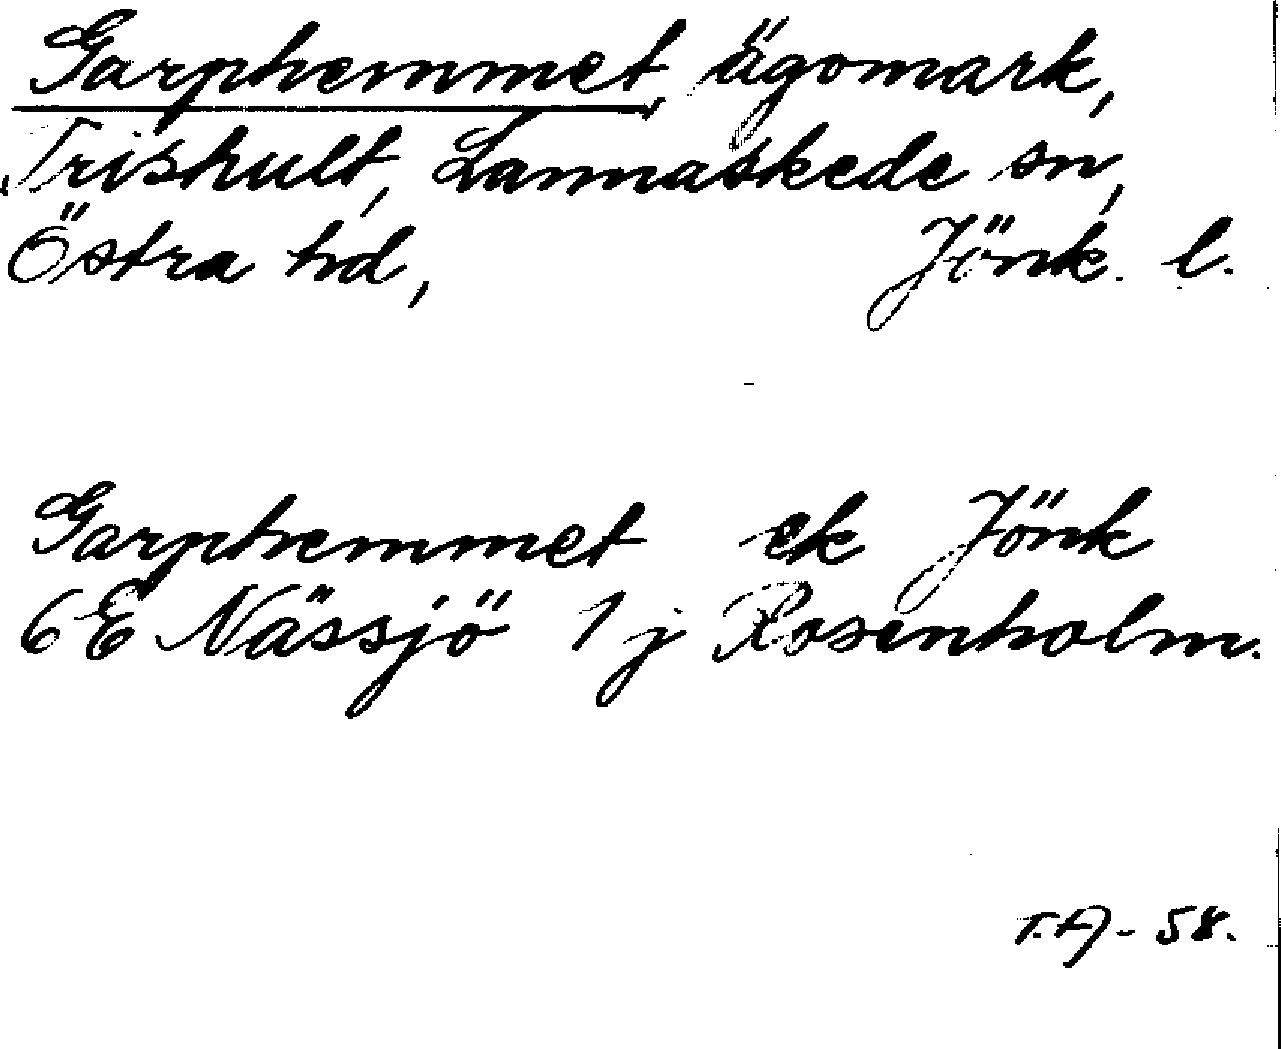 Garphemmet, ägomark,
Trishult, Lannaskede sn,
Östra hd, Jönk. l.
Garphemmet ek Jönk
6E Nässjö 1 j Rosenholm.
T.A - 58.